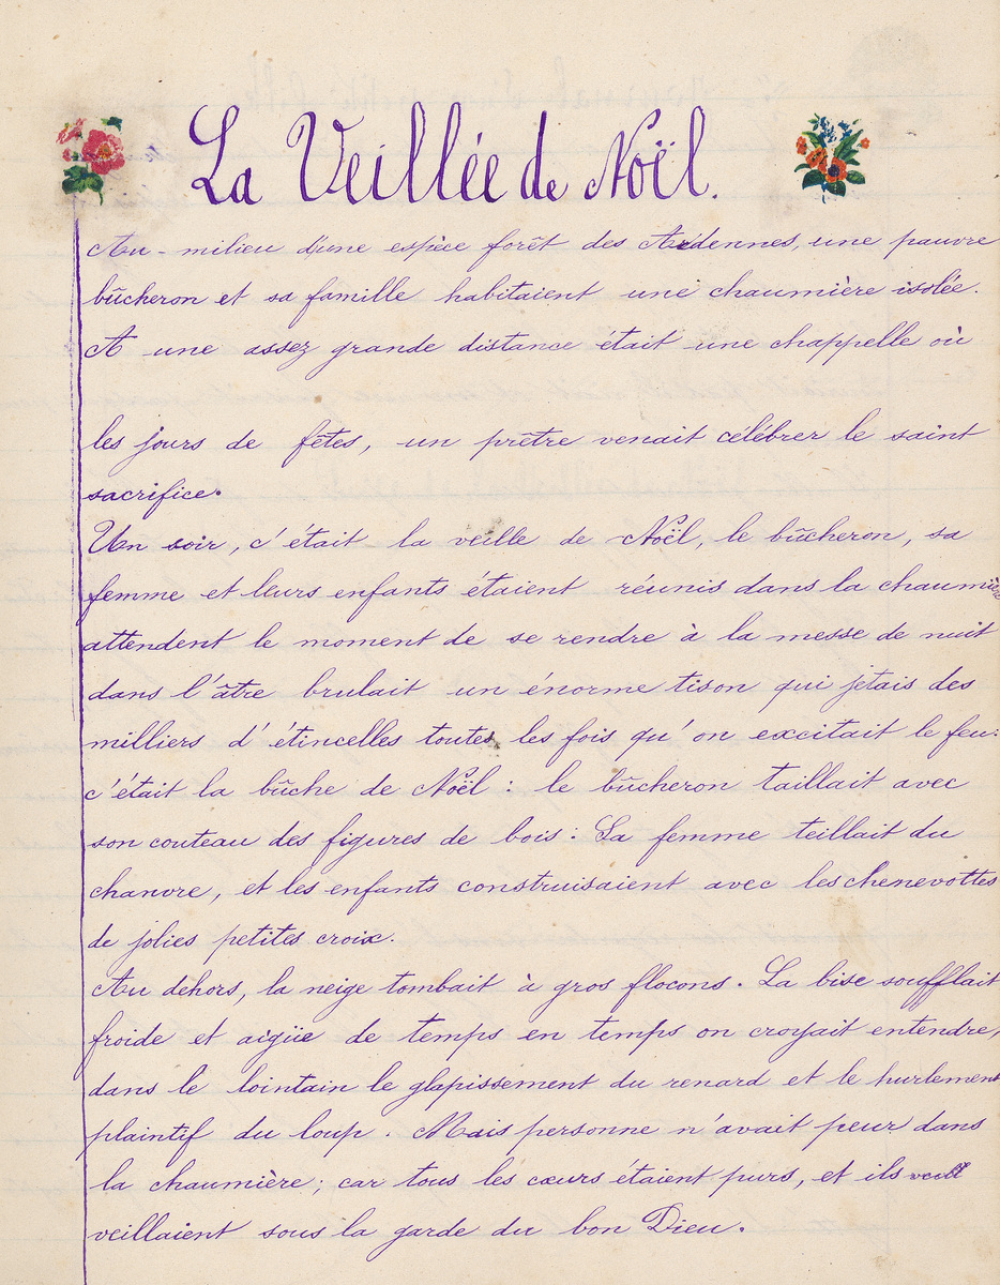 La Veillée de Noël.
Au-milieu d'une espèce forêt des Ardennes, une pauvre
bûcheron et sa famille habitaient une chaumière isolée.
A une assez grande distance était une chappelle où
les jours de fêtes, un prêtre venait célébrer le saint
sacrifice.
Un soir, c'était la veille de Noël, le bûcheron, sa
femme et leurs enfants étaient réunis dans la chaumière
attendent le moment de se rendre à la messe de nuit
dans l'âtre brulait un énorme tison qui jetais des
milliers d'étincelles toutes les fois qu'on excitait le feu:
c'était la bûche de Noël : le bûcheron taillait avec
son couteau des figures de bois : Sa femme teillait du
chanvre, et les enfants construisaient avec les chenevottes
de jolies petites croix.
Au dehors, la neige tombait à gros flocons. La bise soufflait
froide et aigüe de temps en temps on croyait entendre,
dans le lointain le glapissement du renard et le hurlement
plaintif du loup. Mais personne n'avait peur dans
la chaumière; car tous les cœurs étaient purs, et ils veill
veillaient sous la garde du bon Dieu.